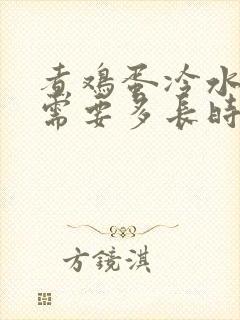 煮鸡蛋冷水
需要多長時
方鏡淇